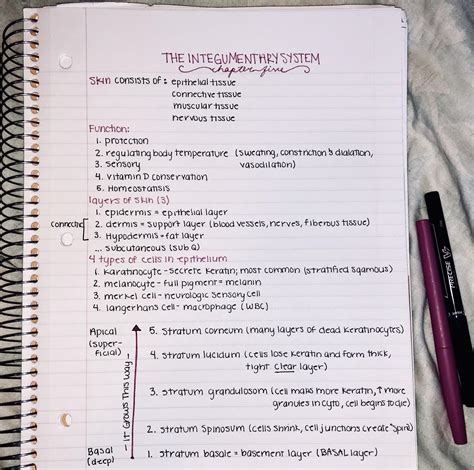 THE INTEGUMENTARY SYSTEM
chapter five
Skin consists of: epithelial tissue
connective tissue
muscular tissue
nervous tissue
Function:
1. protection
2. regulating body temperature (sweating, constriction & dialation,
3. Sensory vasodilation)
4. vitamin D conservation
5. Homeostansis
layers of skin (3)
1. epidermis = epithelial layer
connective 2. dermis = support layer (blood vessels, nerves, fiberous tissue)
3. Hypodermis = fat layer
... subcutaneous (sub Q)
4 types of cells in epithelium
1. Karatinocyte - Secrete Keratin; most common (stratified sqamous)
2. melanocyte - full pigment = melanin
3. merkel cell - neurologic Sensory cell
4. langerhans cell - macrophage (WBC)
Apical (super-ficial)
5. Stratum corneum (many layers of dead keratinocytes)
4. Stratum lucidum (cells lose keratin and form thick,
tight clear layer)
— IT GROWS THIS WAY —
3. stratum grandulosom (cell makes more keratin, ↑ more
granules in cyto, cell begins to die)
2. stratum spinosum (cells shrink, cell junctions create "spiny"
Basal (deep)
1. stratum basale = basement layer (BASAL layer)
PRECISE V5